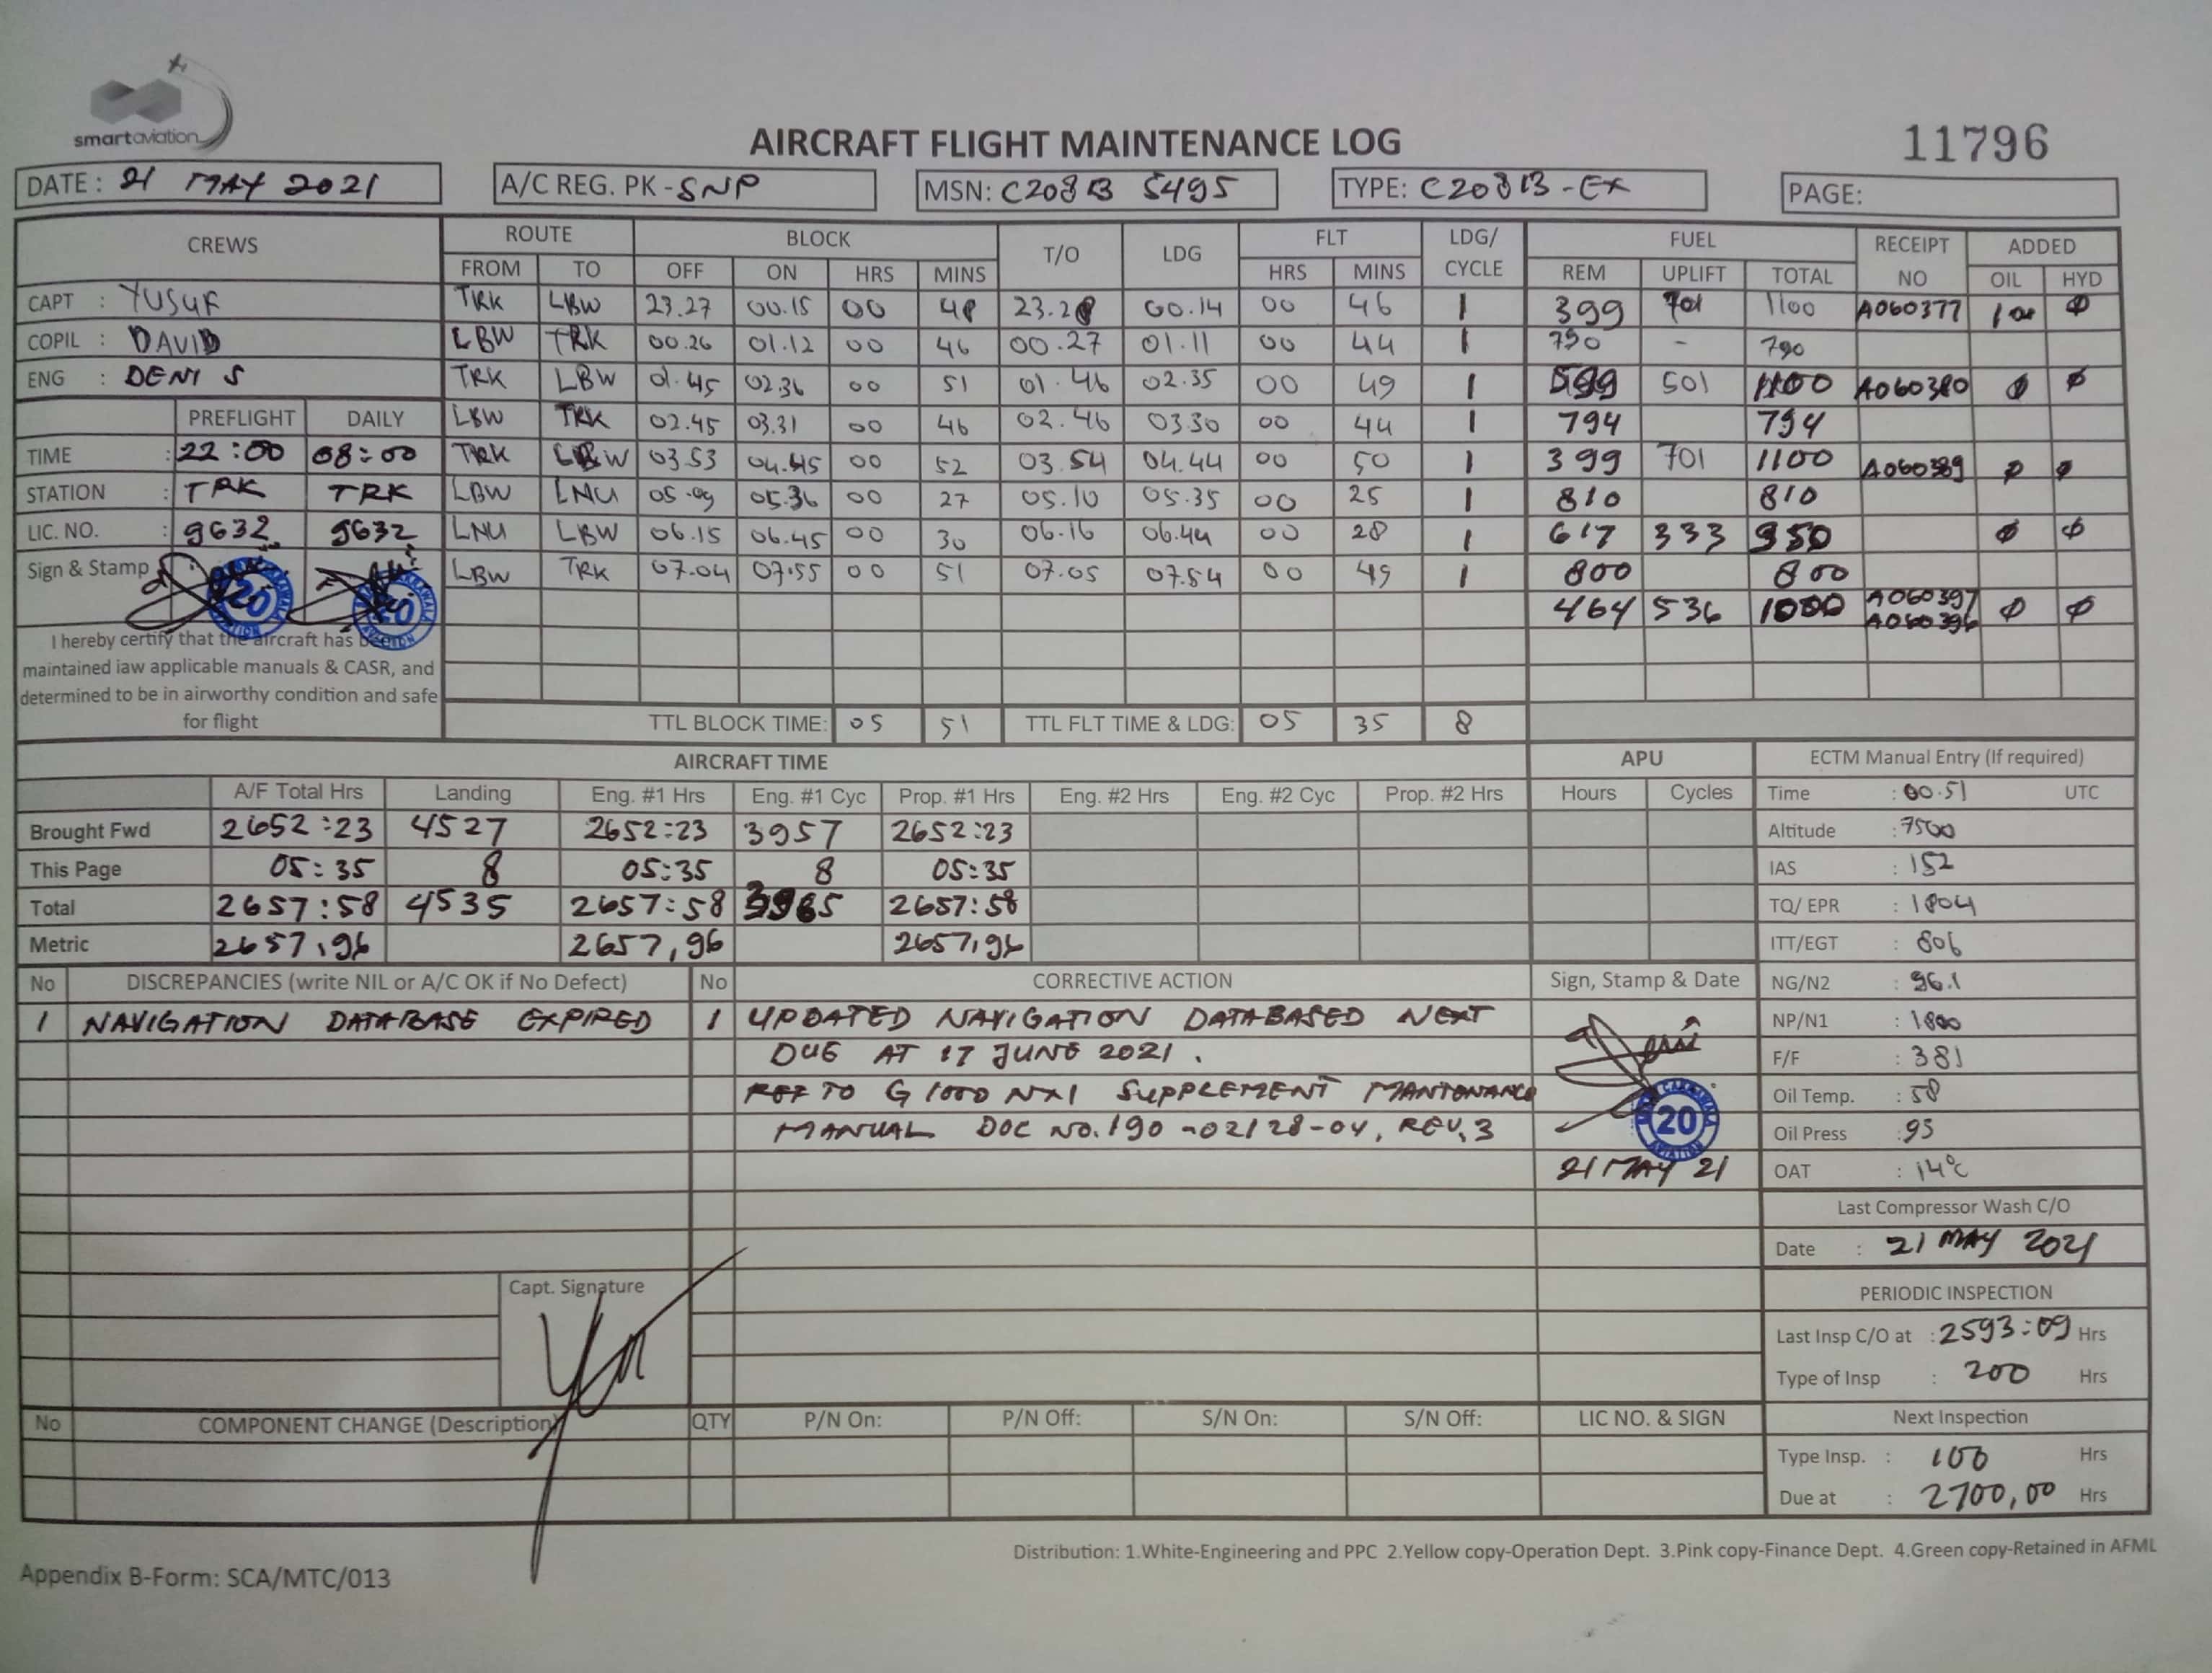 smartaviation
AIRCRAFT FLIGHT MAINTENANCE LOG
11796
DATE : 21 MAY 2021 A/C REG. PK - SNP MSN: C208B 5495 TYPE: C208B - EX PAGE:
CREWS ROUTE BLOCK T/O LDG FLT LDG/ CYCLE FUEL RECEIPT NO ADDED
FROM TO OFF ON HRS MINS HRS MINS REM UPLIFT TOTAL OIL HYD
CAPT : YUSUF TRK LBW 23.27 00.15 00 48 23.28 00.14 00 46 1 399 701 1100 A060377 Ø
COPIL : DAVID LBW TRK 00.26 01.12 00 46 00.27 01.11 00 44 1 790 - 790
ENG : DENI S TRK LBW 01.45 02.36 00 51 01.46 02.35 00 49 1 599 501 1100 A060380 Ø Ø
PREFLIGHT DAILY LBW TRK 02.45 03.31 00 46 02.46 03.30 00 44 1 794 794
TIME : 22:00 08:00 TRK LBW 03.53 04.45 00 52 03.54 04.44 00 50 1 399 701 1100 A060389 Ø Ø
STATION : TRK TRK LBW LNU 05.09 05.36 00 27 05.10 05.35 00 25 1 810 810
LIC. NO. : 9632 9632 LNU LBW 06.15 06.45 00 30 06.16 06.44 00 28 1 617 333 950 Ø Ø
Sign & Stamp LBW TRK 07.04 07.55 00 51 07.05 07.54 00 49 1 800 800
464 536 1000 A060397 A060396 Ø Ø
20 20
I hereby certify that the aircraft has been
maintained iaw applicable manuals & CASR, and
determined to be in airworthy condition and safe
for flight
TTL BLOCK TIME: 05 51 TTL FLT TIME & LDG: 05 35 8
AIRCRAFT TIME APU ECTM Manual Entry (If required)
A/F Total Hrs Landing Eng. #1 Hrs Eng. #1 Cyc Prop. #1 Hrs Eng. #2 Hrs Eng. #2 Cyc Prop. #2 Hrs Hours Cycles Time : 00.51 UTC
Brought Fwd 2652:23 4527 2652:23 3957 2652:23 Altitude : 7500
This Page 05:35 8 05:35 8 05:35 IAS : 152
Total 2657:58 4535 2657:58 3965 2657:58 TQ/ EPR : 1804
Metric 2657,96 2657,96 2657,96 ITT/EGT : 806
No DISCREPANCIES (write NIL or A/C OK if No Defect) No CORRECTIVE ACTION Sign, Stamp & Date NG/N2 : 96.1
1 NAVIGATION DATABASE EXPIRED 1 UPDATED NAVIGATION DATABASED NEXT NP/N1 : 1800
DUE AT 17 JUNE 2021 . F/F : 381
REF TO G 1000 NXI SUPPLEMENT MANTONANCE Oil Temp. : 58
MANUAL DOC NO. 190 -02128-04, REV. 3 20 Oil Press : 95
21 MAY 21 OAT : 14°C
Last Compressor Wash C/O
Date : 21 MAY 2021
Capt. Signature PERIODIC INSPECTION
Last Insp C/O at : 2593:09 Hrs
Type of Insp : 200 Hrs
No COMPONENT CHANGE (Description) QTY P/N On: P/N Off: S/N On: S/N Off: LIC NO. & SIGN Next Inspection
Type Insp. : 100 Hrs
Due at : 2700,00 Hrs
Distribution: 1.White-Engineering and PPC 2.Yellow copy-Operation Dept. 3.Pink copy-Finance Dept. 4.Green copy-Retained in AFML
Appendix B-Form: SCA/MTC/013